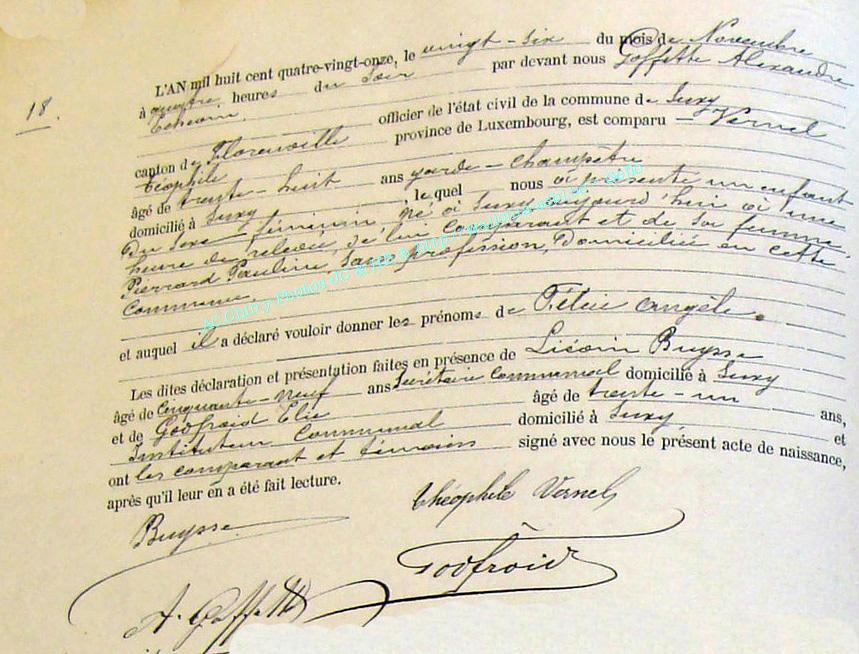 18.
L'AN mil huit cent quatre-vingt-onze, le vingt-six du mois de Novembre
à quatre heures du Soir par devant nous Goffette Alexandre
Echevin officier de l'état civil de la commune de Suxy
canton de Florenville province de Luxembourg, est comparu Vernel
Théophile
âgé de trente-huit ans garde-Champêtre
domicilié à Suxy, le quel nous a présenté un enfant
Du sexe féminin né à Suxy aujourd'hui à une
heure de relevée, de lui comparant et de sa femme
Pierrard Pauline Sans profession, Domiciliée en cette
Commune.
et auquel il a déclaré vouloir donner les prénoms de Angèle.
Les dites déclaration et présentation faites en présence de Buysse
âgé de Cinquante-neuf ans Secrétaire Communal domicilié à Suxy
et de Godfroid Elie âgé de trente-un ans,
Instituteur Communal domicilié à Suxy et
ont les comparant et témoins signé avec nous le présent acte de naissance,
après qu'il leur en a été fait lecture.
Théophile Vernel
Buysse
Godfroid
A. Goffette